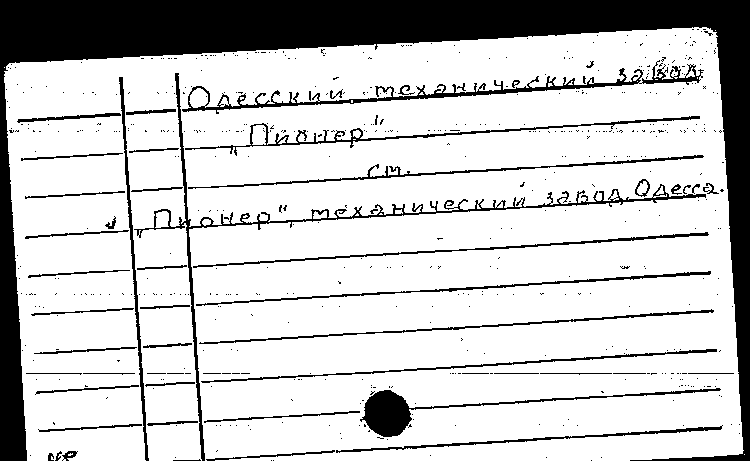 Одесский механический завод
„Пионер"
см.
„Пионер", механический завод. Одесса.